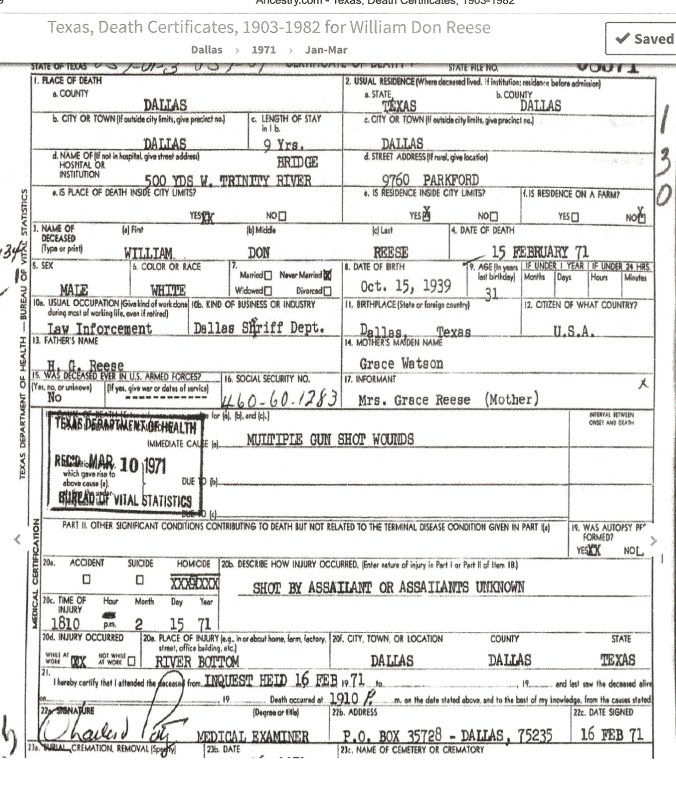 Ancestry.com - Texas, Death Certificates, 1903-1982
Texas, Death Certificates, 1903-1982 for William Don Reese
Dallas > 1971 > Jan-Mar
✓ Saved
STATE OF TEXAS CERTIFICATE OF DEATH STATE FILE NO.
1. PLACE OF DEATH
a. COUNTY
DALLAS
2. USUAL RESIDENCE (Where deceased lived. If institution: residence before admission)
a. STATE b. COUNTY
TEXAS DALLAS
b. CITY OR TOWN (If outside city limits, give precinct no.)
DALLAS
c. LENGTH OF STAY in 1 b.
9 Yrs.
c. CITY OR TOWN (If outside city limits, give precinct no.)
DALLAS
d. NAME OF (If not in hospital, give street address)
HOSPITAL OR
INSTITUTION
BRIDGE
500 YDS W. TRINITY RIVER
d. STREET ADDRESS (If rural, give location)
9760 PARKFORD
e. IS PLACE OF DEATH INSIDE CITY LIMITS?
YES NO
e. IS RESIDENCE INSIDE CITY LIMITS?
YES NO
f. IS RESIDENCE ON A FARM?
YES NO
1
3
0
3. NAME OF
DECEASED
(Type or print)
(a) First (b) Middle (c) Last
WILLIAM DON REESE
4. DATE OF DEATH
15 FEBRUARY 71
5. SEX
MALE
6. COLOR OR RACE
WHITE
7.
Married Never Married
Widowed Divorced
8. DATE OF BIRTH
Oct. 15, 1939
9. AGE (In years last birthday)
31
IF UNDER 1 YEAR IF UNDER 24 HRS.
Months Days Hours Minutes
10a. USUAL OCCUPATION (Give kind of work done
during most of working life, even if retired)
Law Inforcement
10b. KIND OF BUSINESS OR INDUSTRY
Dallas Shriff Dept.
11. BIRTHPLACE (State or foreign country)
Dallas, Texas
12. CITIZEN OF WHAT COUNTRY?
U.S.A.
13. FATHER'S NAME
H. G. Reese
14. MOTHER'S MAIDEN NAME
Grace Watson
15. WAS DECEASED EVER IN U.S. ARMED FORCES?
(Yes, no, or unknown) (If yes, give war or dates of service)
No -------------
16. SOCIAL SECURITY NO.
460-60-1283
17. INFORMANT
Mrs. Grace Reese (Mother)
X
for (a), (b), and (c).]
INTERVAL BETWEEN
ONSET AND DEATH
TEXAS DEPARTMENT OF HEALTH
IMMEDIATE CAUSE (a)
MULTIPLE GUN SHOT WOUNDS
REC'D MAR. 10 1971
which gave rise to
above cause (a).
DUE TO (b)
BUREAU OF VITAL STATISTICS
DUE TO (c)
PART II. OTHER SIGNIFICANT CONDITIONS CONTRIBUTING TO DEATH BUT NOT RELATED TO THE TERMINAL DISEASE CONDITION GIVEN IN PART I(a)
19. WAS AUTOPSY PER
FORMED?
YES NO
20a. ACCIDENT SUICIDE HOMICIDE
20b. DESCRIBE HOW INJURY OCCURRED. (Enter nature of injury in Part I or Part II of Item 18.)
SHOT BY ASSAILANT OR ASSAILANTS UNKNOWN
20c. TIME OF
INJURY
Hour Month Day Year
1810 p.m. 2 15 71
20d. INJURY OCCURRED
WHILE AT WORK NOT WHILE AT WORK
20e. PLACE OF INJURY (e.g., in or about home, farm, factory,
street, office building, etc.)
RIVER BOTTOM
20f. CITY, TOWN, OR LOCATION COUNTY STATE
DALLAS DALLAS TEXAS
21.
I hereby certify that I attended the deceased from INQUEST HELD 16 FEB 1971 to , 19 , and last saw the deceased alive
on , 19 . Death occurred at 1910 P. m. on the date stated above, and to the best of my knowledge, from the causes stated.
22a. SIGNATURE (Degree or title)
MEDICAL EXAMINER
22b. ADDRESS
P.O. BOX 35728 - DALLAS, 75235
22c. DATE SIGNED
16 FEB 71
23a. BURIAL, CREMATION, REMOVAL (Specify) 23b. DATE 23c. NAME OF CEMETERY OR CREMATORY
TEXAS DEPARTMENT OF HEALTH — BUREAU OF VITAL STATISTICS
MEDICAL CERTIFICATION